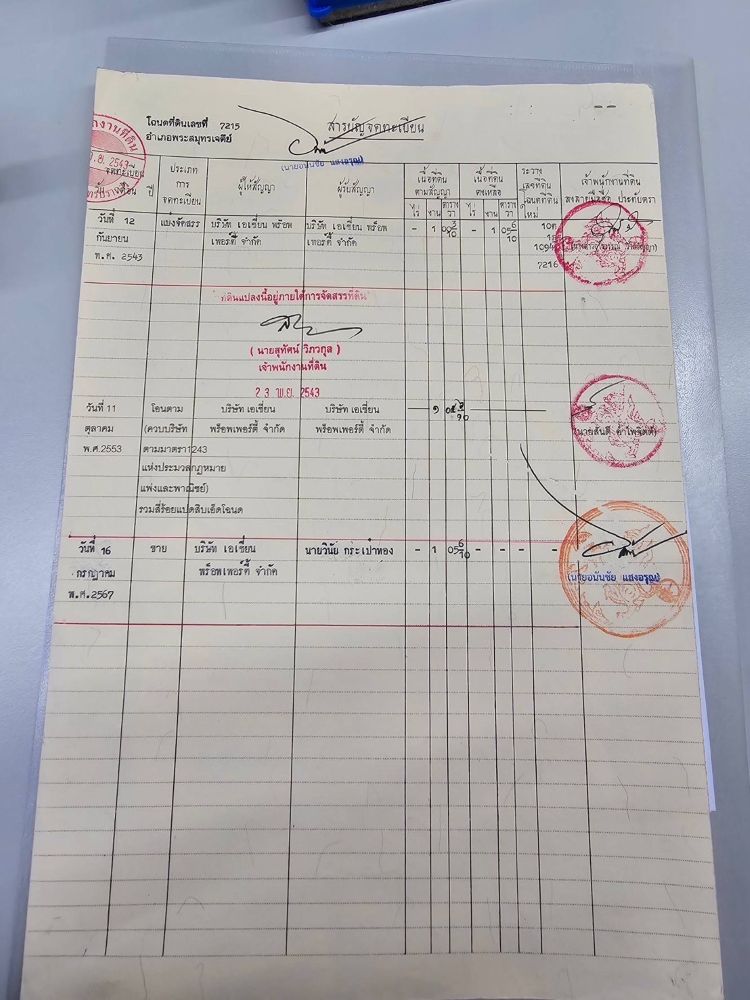 โฉนดที่ดินเลขที่ 7215 สารบัญจดทะเบียน
อำเภอพระสมุทรเจดีย์
(นายอนันชัย แสงอรุณ)
จดทะเบียน วัน เดือน ปี
ประเภทการจดทะเบียน
ผู้ให้สัญญา
ผู้รับสัญญา
เนื้อที่ดินตามสัญญา
ไร่ งาน ตารางวา
เนื้อที่ดินคงเหลือ
ไร่ งาน ตารางวา
ระวาง เลขที่ดิน โฉนดที่ดินใหม่
เจ้าพนักงานที่ดิน
ลงลายมือชื่อ ประทับตรา
วันที่ 12 แบ่งจัดสรร บริษัท เอเชี่ยน พร้อพ บริษัท เอเชี่ยน พร็อพ - 1 - 1
กันยายน เพอร์ตี้ จำกัด เพอร์ตี้ จำกัด
พ.ศ. 2543
7216
"ที่ดินแปลงนี้อยู่ภายใต้การจัดสรรที่ดิน"
( นายสุทัศน์ วิภวกูล )
เจ้าพนักงานที่ดิน
23 พ.ย. 2543
วันที่ 11 โอนตาม บริษัท เอเชี่ยน บริษัท เอเชี่ยน
ตุลาคม (ควบบริษัท พร็อพเพอร์ตี้ จำกัด พร็อพเพอร์ตี้ จำกัด
พ.ศ.2553 ตามมาตรา1243
แห่งประมวลกฎหมาย
แพ่งและพาณิชย์)
รวมสี่ร้อยแปดสิบเอ็ดโฉนด
วันที่ 16 ขาย บริษัท เอเชี่ยน นายวินัย กระเป๋าทอง - 1 05 6/10 - - - -
กรกฎาคม พร็อพเพอร์ตี้ จำกัด
พ.ศ.2567
(นายอนันชัย แสงอรุณ)